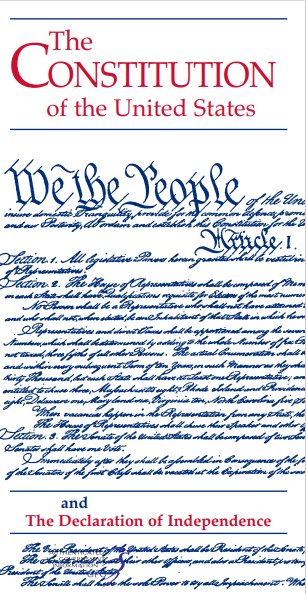 The
CONSTITUTION
of the United States
We the People of the Unit
insure domestic Tranquility, provide for the common defence, prom
and our Posterity, do ordain and establish this Constitution for the U
Article. I.
Section. 1. All legislative Powers herein granted shall be vested in
of Representatives.
Section. 2. The House of Representatives shall be composed of Mem
in each State shall have Qualifications requisite for Electors of the most nume
No Person shall be a Representative who shall not have attained
and who shall not, when elected, be an Inhabitant of that State in which he
Representatives and direct Taxes shall be apportioned among the several
Numbers, which shall be determined by adding to the whole Number of free
not taxed, three fifths of all other Persons. The actual Enumeration shall
and within every subsequent Term of ten Years, in such Manner as they
thirty Thousand, but each State shall have at Least one Representative; an
entitled to chuse three, Massachusetts eight, Rhode Island and Providence
eight, Delaware one, Maryland six, Virginia ten, North Carolina five, S
When vacancies happen in the Representation from any State, the
The House of Representatives shall chuse their Speaker and other
Section. 3. The Senate of the United States shall be composed of two
Senator shall have one Vote.
Immediately after they shall be assembled in Consequence of the f
of the Senators of the first Class shall be vacated at the Expiration of the se
and
The Declaration of Independence
The Vice President of the United States shall be President of the Senate,
The Senate shall chuse their other Officers, and also a President pro tem
President of the United States.
The Senate shall have the sole Power to try all Impeachments. Wh